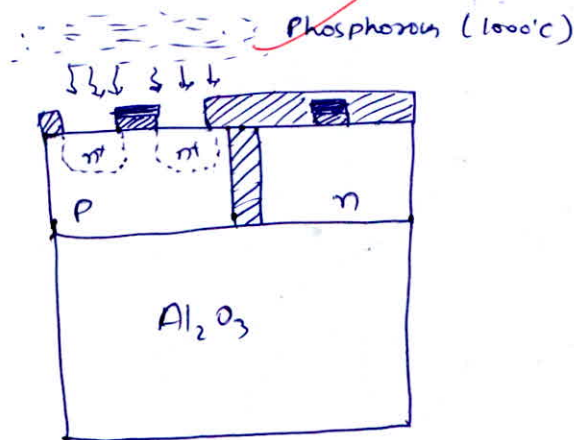 Phosphorous (1000°C)
n+ n+
P n
Al2O3